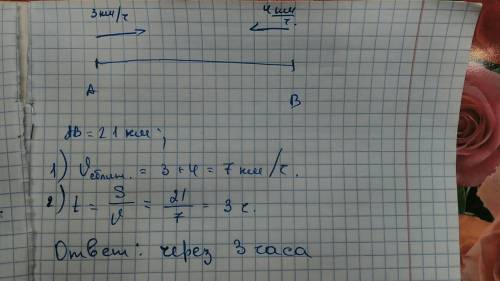 3 км/ч
4 км/ч.
A
B
AB = 21 км;
1) Vсближ. = 3 + 4 = 7 км/ч.
2) t = S/V = 21/7 = 3 ч.
Ответ: через 3 часа